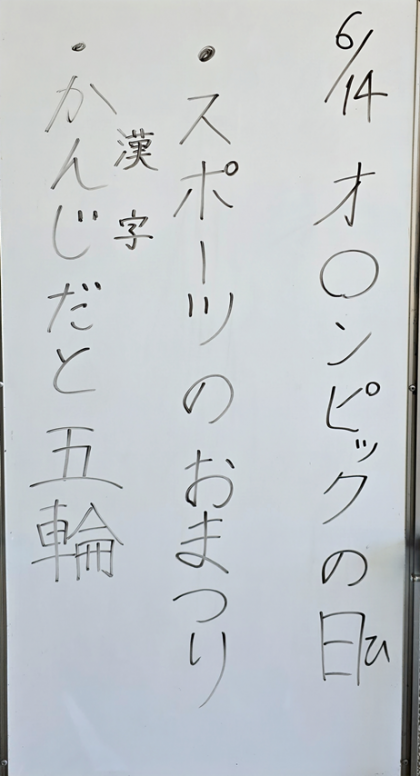 6/14 オ〇ンピックの日
ひ
・スポーツのおまつり
漢字
・かんじだと五輪